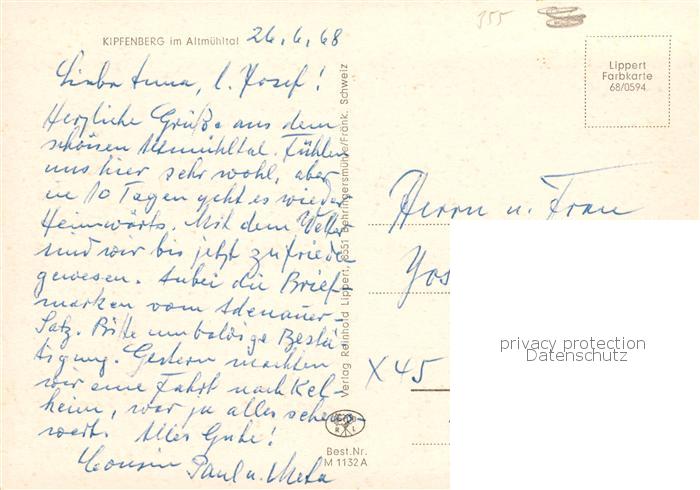 KIPFENBERG im Altmühltal
26.6.68
Liebe Anna, l. Josef!
Herzliche Grüße aus dem
schönen Altmühltal. Fühlen
uns hier sehr wohl, aber
in 10 Tagen geht es wieder
Heimwärts. Mit dem Wetter
sind wir bis jetzt zufrieden
gewesen. Anbei die Brief-
marken vom Adenauer-
Satz. Bitte um baldige Bestä-
tigung. Gestern machten
wir eine Fahrt nach Kel-
heim, war ja alles sehens-
wert. Alles Gute!
Cousin Paul u. Meta
Verlag Reinhold Lippert, 8551 Behringersmühle/Fränk. Schweiz
R L
Best.Nr.
M 1132 A
355
Lippert
Farbkarte
68/0594
Herrn u. Frau
Jos
X 45
privacy protection
Datenschutz